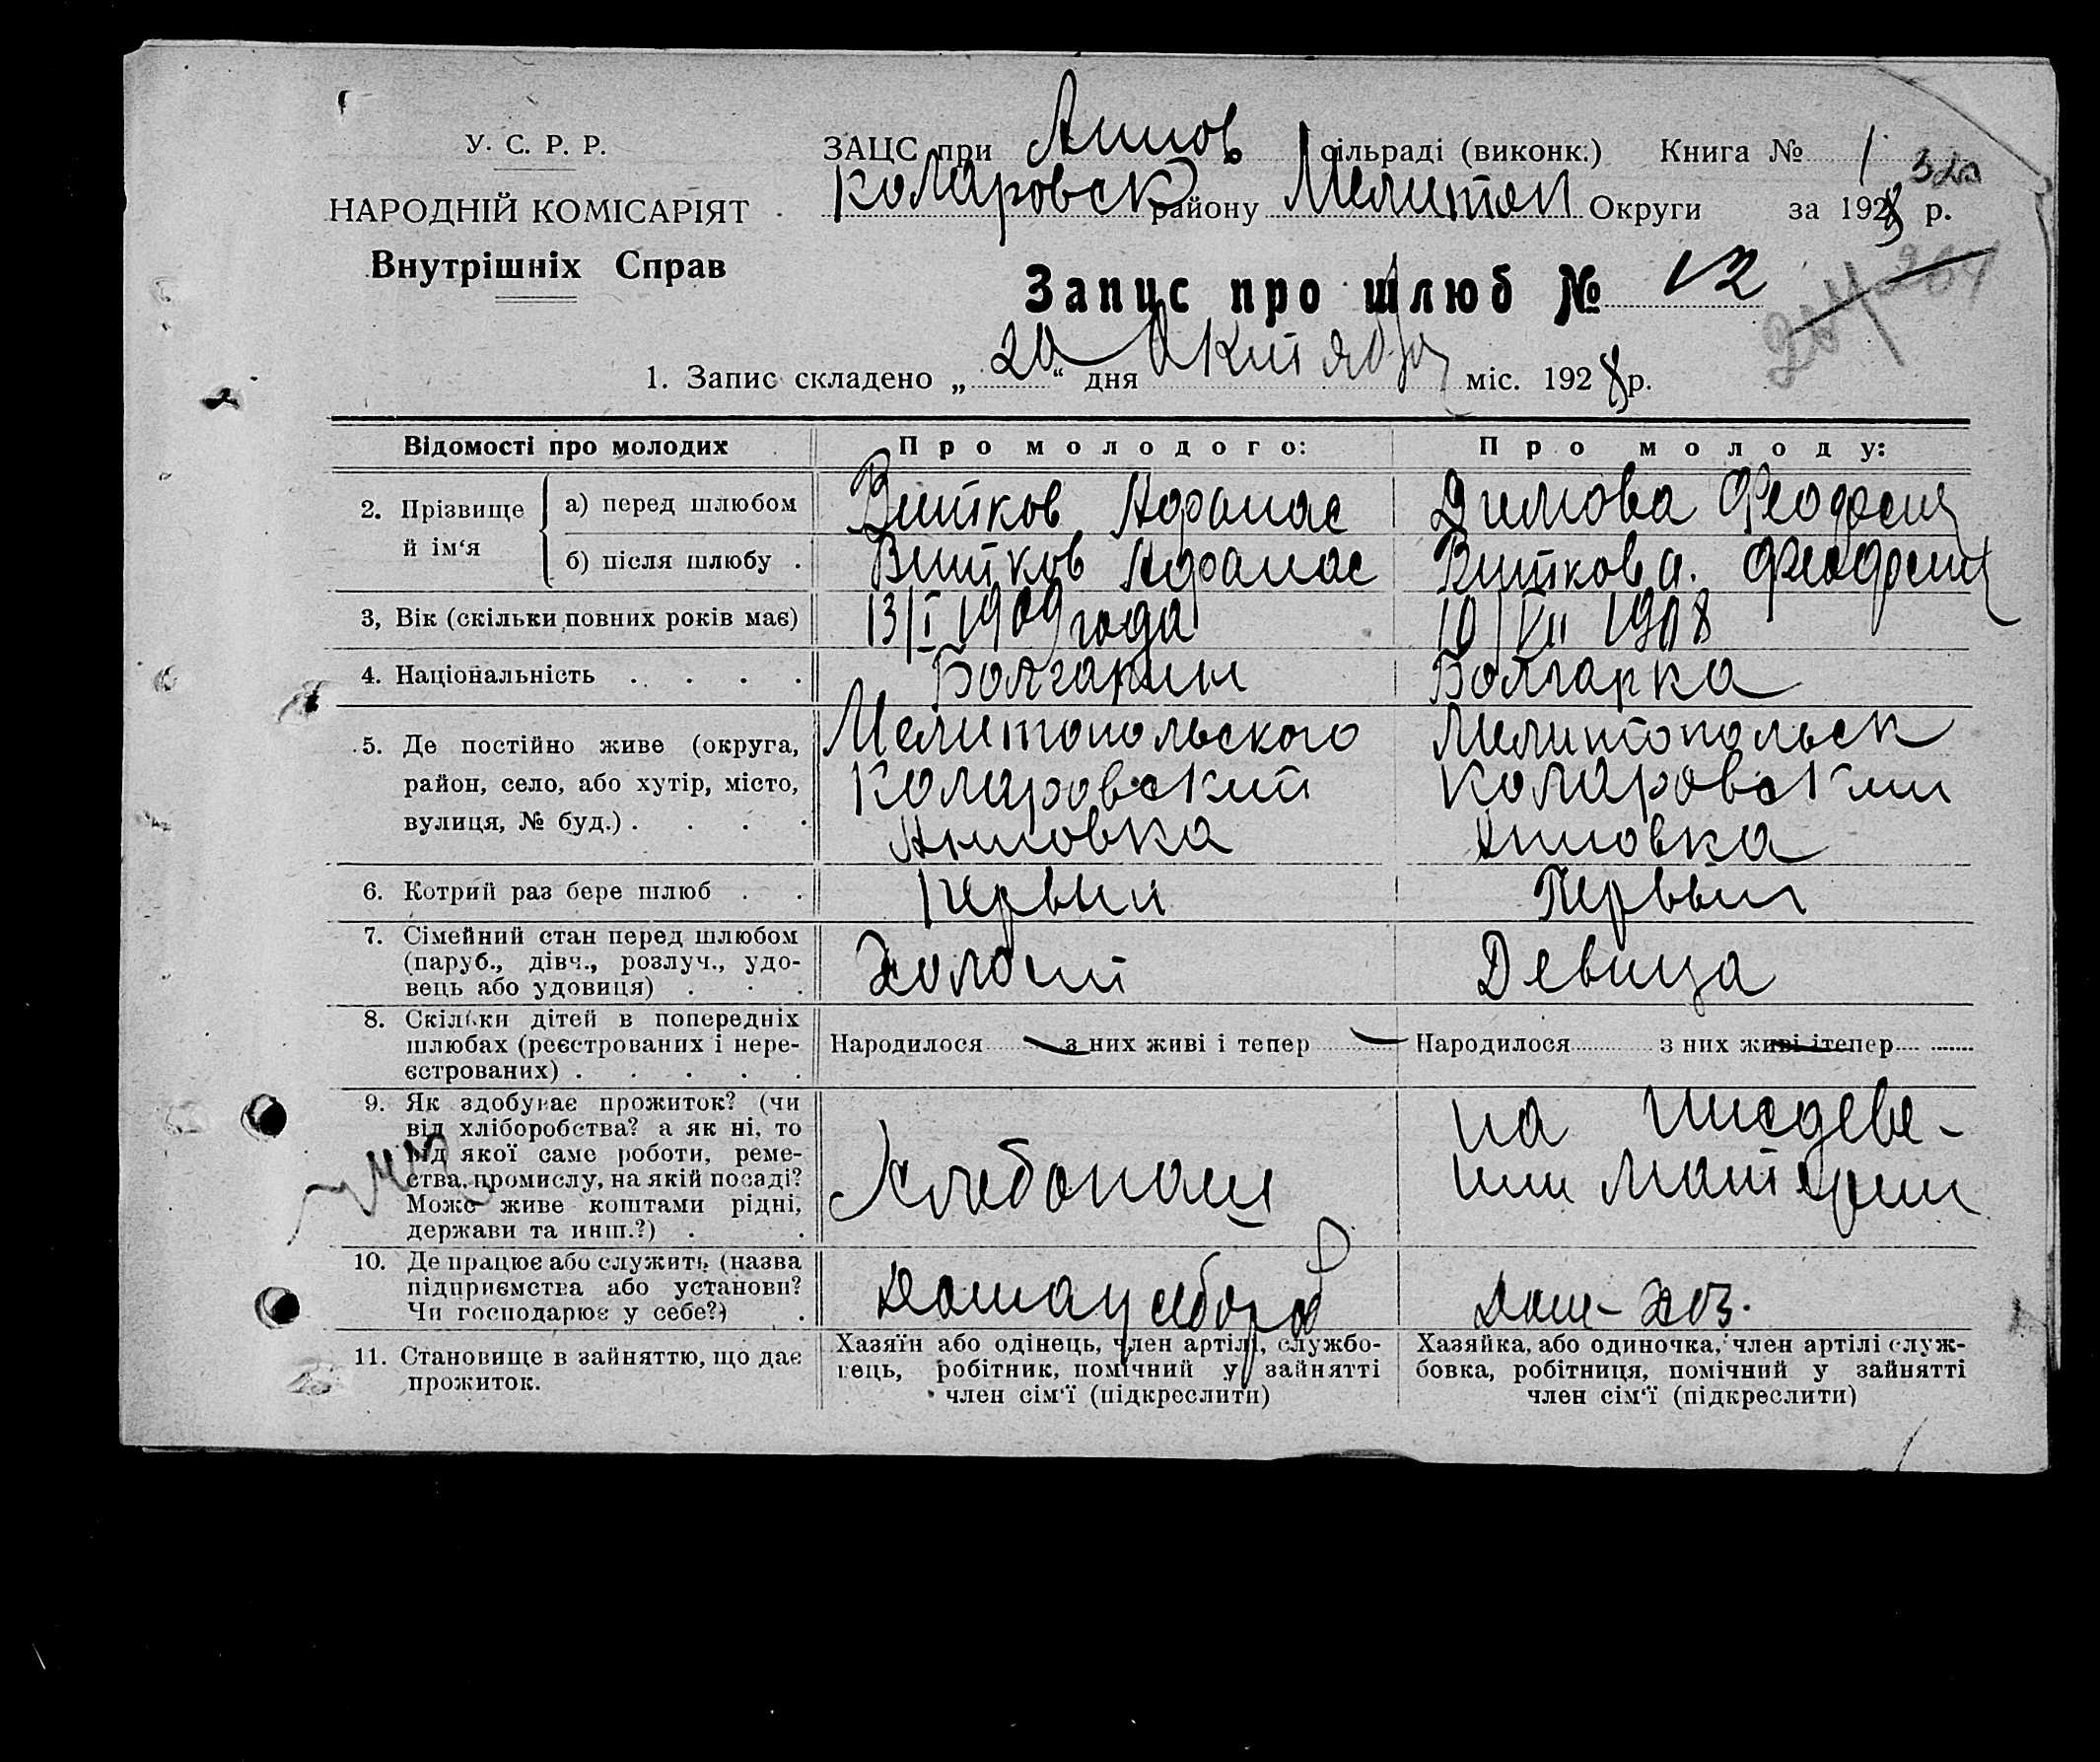 У. С. Р. Р.
НАРОДНІЙ КОМІСАРІЯТ
Внутрішніх Справ
ЗАЦС при Аннов сільраді (виконк.) Книга № 1
Коларовск району Мелитоп Округи за 1928 р.
Запис про шлюб № 12
1. Запис складено „20“ дня Октября міс. 1928 р.
Відомості про молодих Про молодого: Про молоду:
2. Прізвище й ім‘я
а) перед шлюбом Витков Афанас Димова Феодосия
б) після шлюбу . Витков Афанас Виткова. Феодосия
3, Вік (скільки повних років має) 13/I 1909 года 10/VII 1908
4. Національність . . . . Болгарин Болгарка
5. Де постійно живе (округа, Мелитопольского Мелитопольск
район, село, або хутір, місто, Коларовский Коларовский
вулиця, № буд.) . . . . Анновка Анновка
6. Котрий раз бере шлюб . . Первый Первый
7. Сімейний стан перед шлюбом
(паруб., дівч., розлуч., удо-
вець або удовиця) . . . Холост Девица
8. Скільки дітей в попередніх
шлюбах (реєстрованих і нере-
єстрованих) . . . . . Народилося з них живі і тепер Народилося з них живі ітепер
9. Як здобуває прожиток? (чи
від хліборобства? а як ні, то
від якої саме роботи, реме-
ства, промислу, на якій посаді?
Може живе коштами рідні,
держави та инш.?) . . Хлебопаш на иждеве-
нии матери
10. Де працює або служить (назва
підприємства або установи?
Чи господарює у себе?) . Дома у себя Дом-хоз.
11. Становище в зайняттю, що дає
прожиток.
Хазяїн або одінець, член артілі, службо-
вець, робітник, помічний у зайнятті
член сім‘ї (підкреслити)
Хазяйка, або одиночка, член артілі служ-
бовка, робітниця, помічний у зайнятті
член сім‘ї (підкреслити)